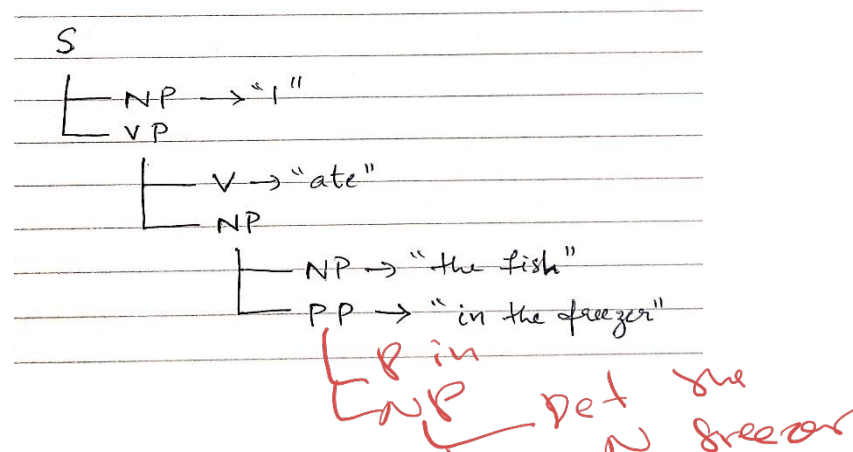 S
NP → "I"
VP
V → "ate"
NP
NP → "the fish"
PP → "in the freezer"
P in
NP
Det the
N freezer